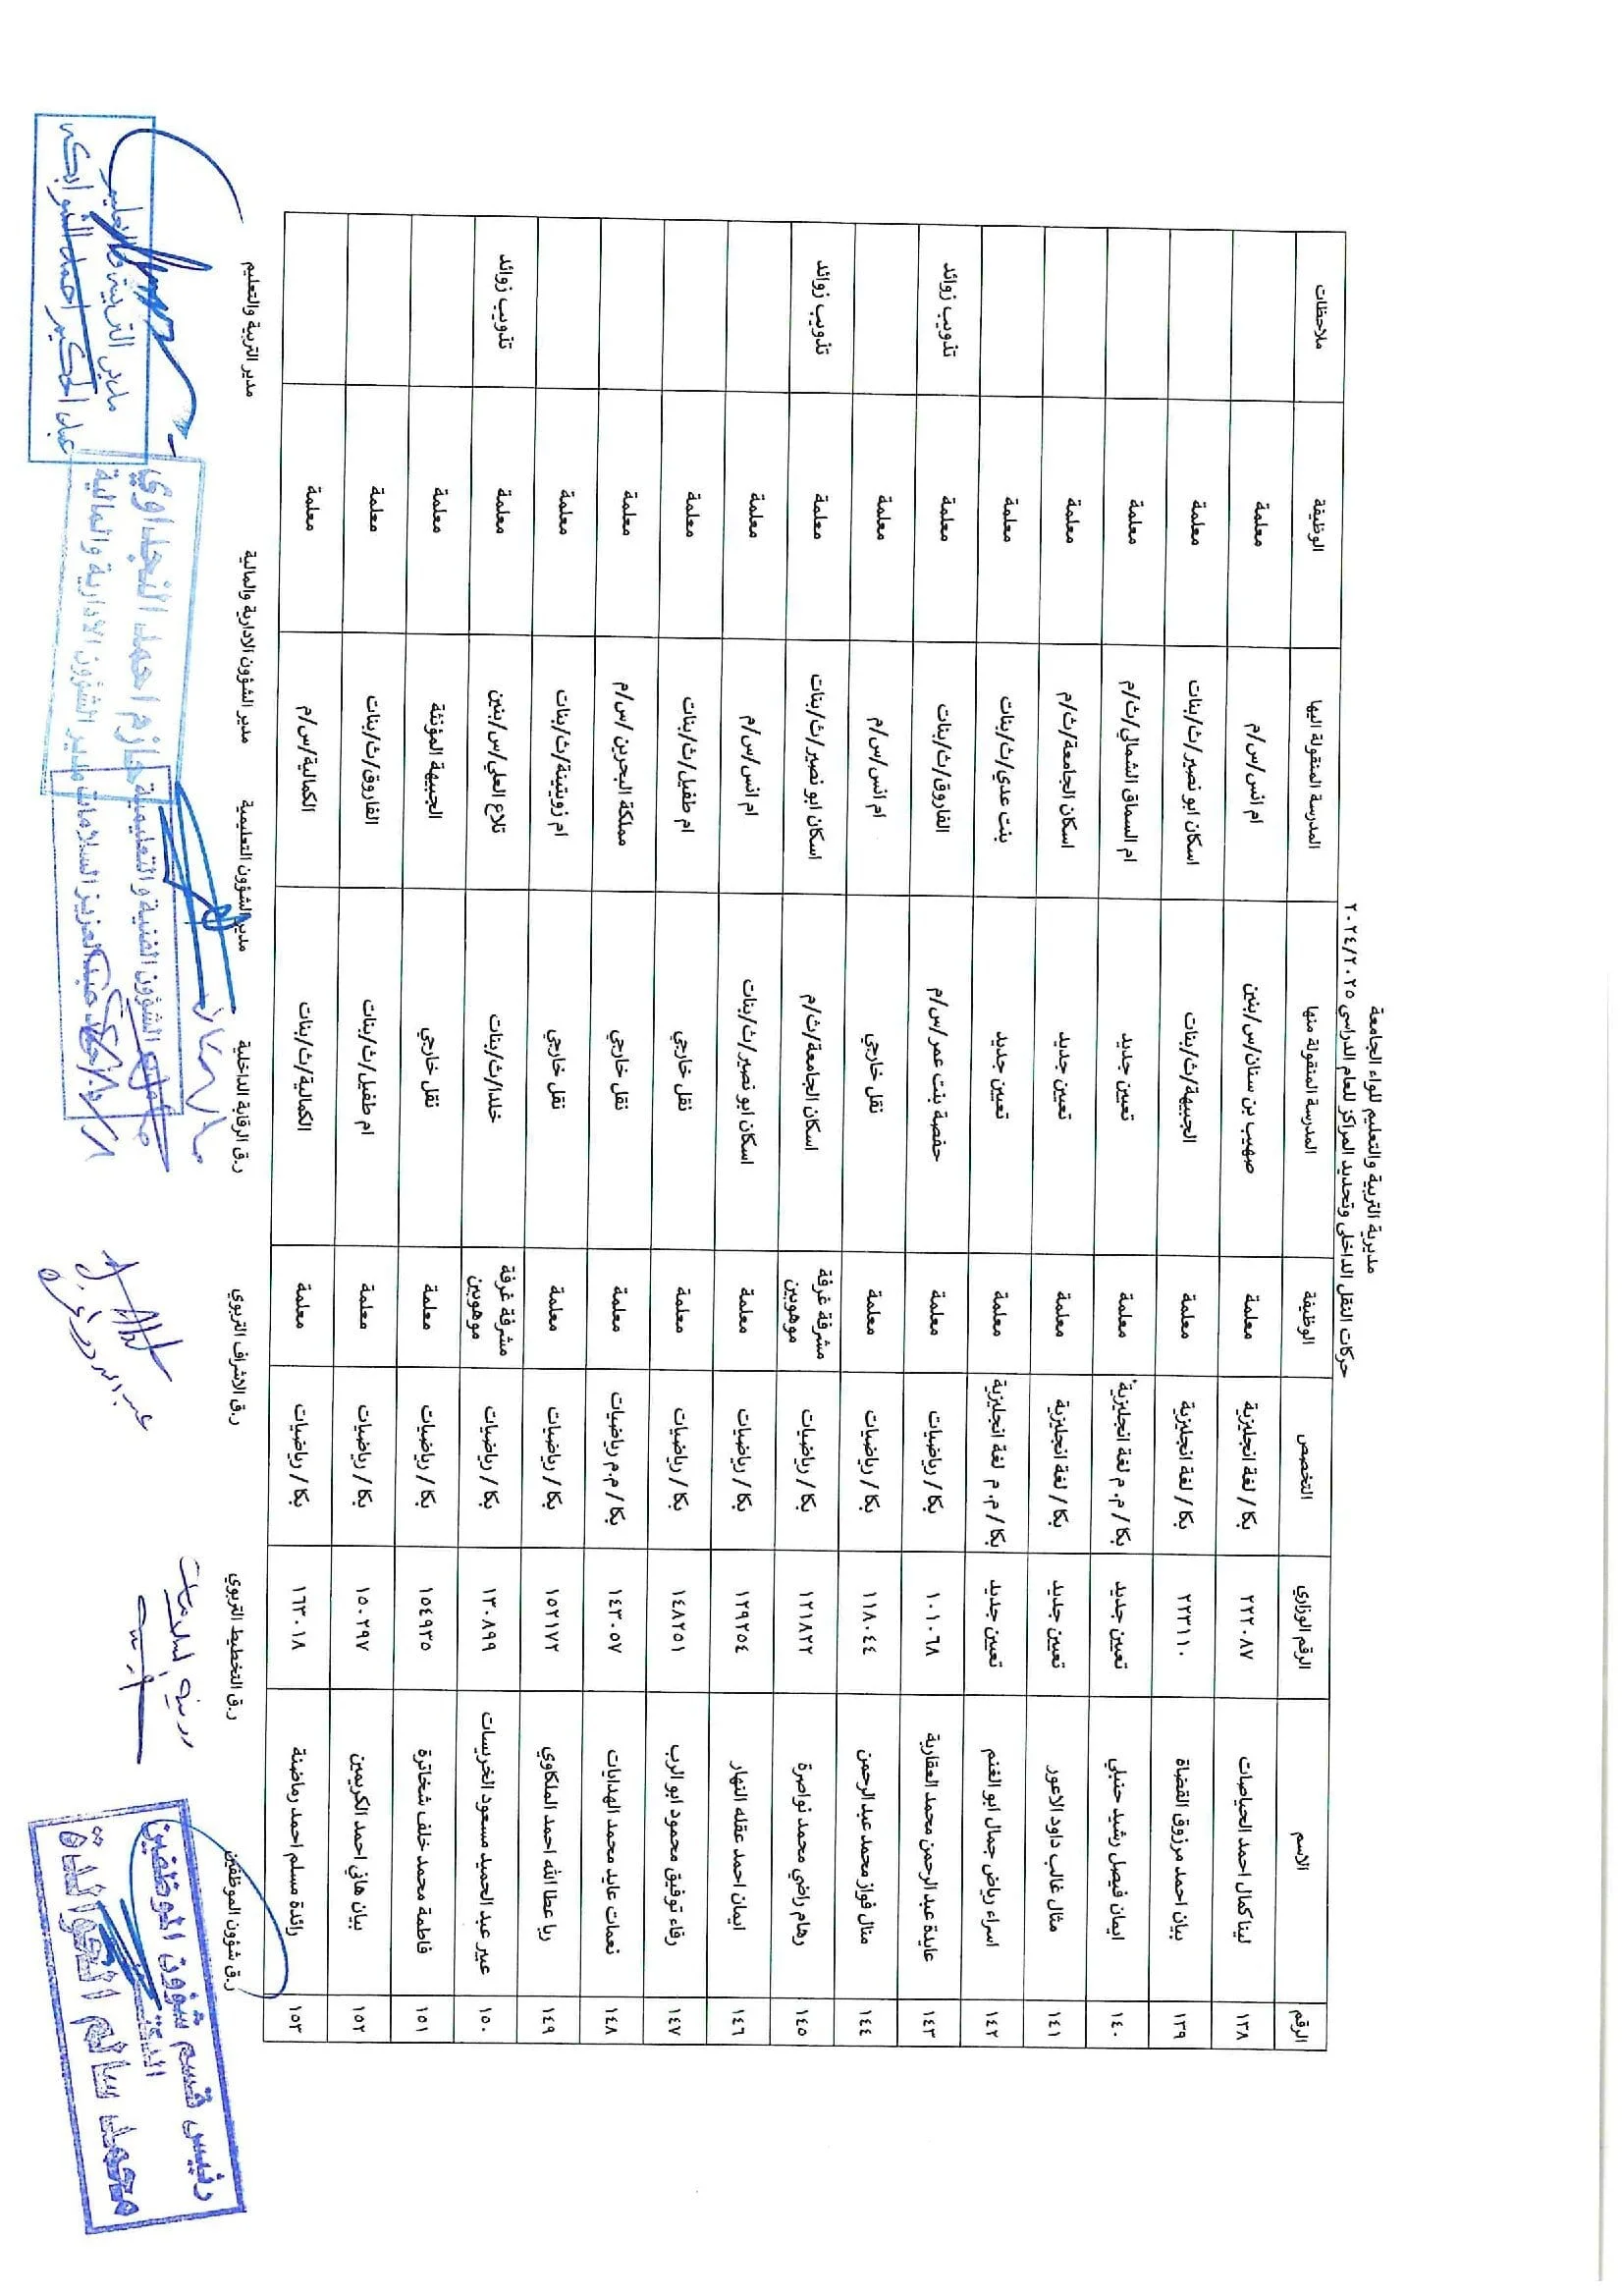 مديرية التربية والتعليم للواء الجامعة
حركات النقل الداخلي وتحديد المراكز للعام الدراسي ٢٠٢٤/٢٠٢٥
الرقم الاسم الرقم الوزاري التخصص الوظيفة المدرسة المنقولة منها المدرسة المنقولة اليها الوظيفة ملاحظات
١٣٨ لينا كمال احمد الحياصات ٢٢٢٠٨٧ بكا / لغة انجليزية معلمة صهيب بن سنان/س/بنين ام انس/س/م معلمة
١٣٩ بيان احمد مرزوق القضاة ٢٢٣١١٠ بكا / لغة انجليزية معلمة الجبيهة/ث/بنات اسكان ابو نصير/ث/بنات معلمة
١٤٠ ايمان فيصل رشيد حنبلي تعيين جديد بكا / م.م لغة انجليزية معلمة تعيين جديد ام السماق الشمالي/ث/م معلمة
١٤١ مثال غالب داود الاعور تعيين جديد بكا / لغة انجليزية معلمة تعيين جديد اسكان الجامعة/ث/م معلمة
١٤٢ اسراء رياض جمال ابو الغنم تعيين جديد بكا / م.م لغة انجليزية معلمة تعيين جديد بنت عدي/ث/بنات معلمة
١٤٣ عايدة عبد الرحمن محمد العقاربة ١٠١٠٦٨ بكا / رياضيات معلمة حفصة بنت عمر/س/م الفاروق/ث/بنات معلمة تذويب زوائد
١٤٤ منال فواز محمد عبد الرحمن ١١٨٠٤٤ بكا / رياضيات معلمة نقل خارجي ام انس/س/م معلمة
١٤٥ رهام راضي محمد نواصرة ١٢١٨٢٢ بكا / رياضيات مشرفة غرفة موهوبين اسكان الجامعة/ث/م اسكان ابو نصير/ث/بنات معلمة تذويب زوائد
١٤٦ ايمان احمد عقله النهار ١٢٩٢٥٤ بكا / رياضيات معلمة اسكان ابو نصير/ث/بنات ام انس/س/م معلمة
١٤٧ رفاء توفيق محمود ابو الرب ١٤٨٢٥١ بكا / رياضيات معلمة نقل خارجي ام طفيل/ث/بنات معلمة
١٤٨ نعمات عايد محمد الهدايات ١٤٣٠٥٧ بكا / م.م رياضيات معلمة نقل خارجي مملكة البحرين /س/م معلمة
١٤٩ ربا عطا الله احمد الملكاوي ١٥٢١٧٢ بكا / رياضيات معلمة نقل خارجي ام زويتينة/ث/بنات معلمة
١٥٠ عبير عبد الحميد مسعود الخريسات ١٣٠٨٩٩ بكا / رياضيات مشرفة غرفة موهوبين خلدا/ث/بنات تلاع العلي/س/بنين معلمة تذويب زوائد
١٥١ فاطمة محمد خلف شخاترة ١٥٤٩٣٥ بكا / رياضيات معلمة نقل خارجي الجبيهة المؤنثة معلمة
١٥٢ بيان هاني احمد الكريمين ١٥٠٢٩٧ بكا / رياضيات معلمة ام طفيل/ث/بنات الفاروق/ث/بنات معلمة
١٥٣ رائدة مسلم احمد رماضنة ١٦٣٠١٨ بكا / رياضيات معلمة الكمالية/ث/بنات الكمالية/س/م معلمة
ر.ق شؤون الموظفين ر.ق التخطيط التربوي ر.ق الاشراف التربوي ر.ق الرقابة الداخلية مدير الشؤون التعليمية مدير الشؤون الادارية والمالية مدير التربية والتعليم
رئيس قسم شؤون الموظفين
محمد سالم الخوالدة
مدير الشؤون الفنية والتعليمية
حازم احمد النجداوي
مدير الشؤون الادارية والمالية
مدير التربية والتعليم